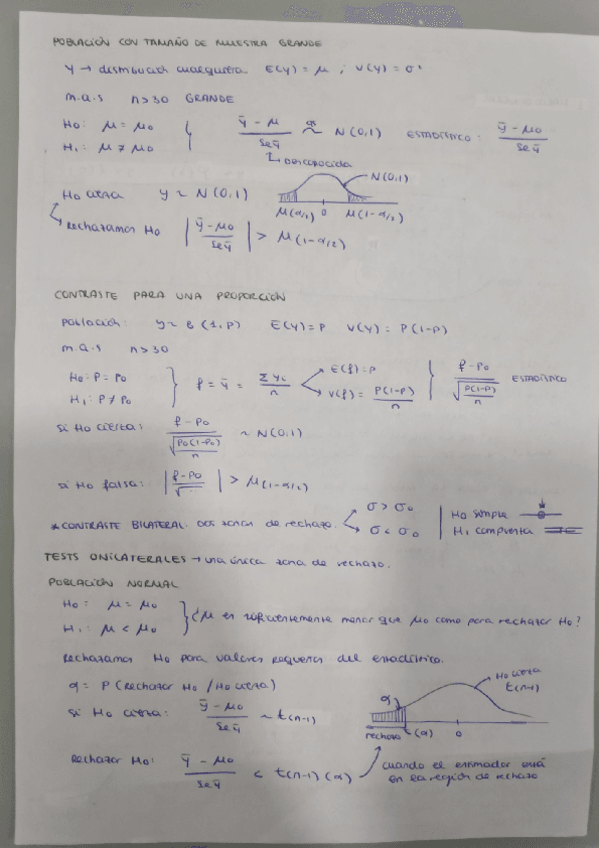 POBLACIÓN CON TAMAÑO DE MUESTRA GRANDE
Y → distribución cualquiera E(Y) = μ ; V(Y) = σ²
m.a.s n>30 GRANDE
H0: μ = μ0
H1: μ ≠ μ0
(ȳ - μ)/Seȳ ~ N(0,1) ESTADÍSTICO: (ȳ - μ0)/Seȳ
↳ Desconocida
H0 cierta y ~ N(0,1)
N(0,1)
μ(α/2) 0 μ(1-α/2)
↳ rechazamos H0 |(ȳ - μ0)/Seȳ| > μ(1-α/2)
CONTRASTE PARA UNA PROPORCIÓN
Población: y ~ B(1,P) E(Y)=P V(Y) = P(1-P)
m.a.s n>30
H0: P = P0
H1: P ≠ P0
f = ȳ = Σyi/n
E(f) = P
V(f) = P(1-P)/n
(f-P0)/√(P(1-P)/n) ESTADÍSTICO
si H0 cierta: (f-P0)/√(P0(1-P0)/n) ~ N(0,1)
si H0 falsa: |(f-P0)/√...| > μ(1-α/2)
* CONTRASTE BILATERAL: Dos zonas de rechazo.
σ > σ0
σ < σ0
H0 simple
H1 compuesta
TESTS UNILATERALES → una única zona de rechazo.
POBLACIÓN NORMAL
H0: μ = μ0
H1: μ < μ0
¿μ es suficientemente menor que μ0 como para rechazar H0?
Rechazamos H0 para valores pequeños del estadístico.
α = P(Rechazar H0 / H0 cierta)
si H0 cierta: (ȳ - μ0)/Seȳ ~ t(n-1)
H0 cierta
t(n-1)
α
rechazo t(α) 0
Rechazar H0: (ȳ - μ0)/Seȳ < t(n-1)(α)
cuando el estimador está
en la región de rechazo